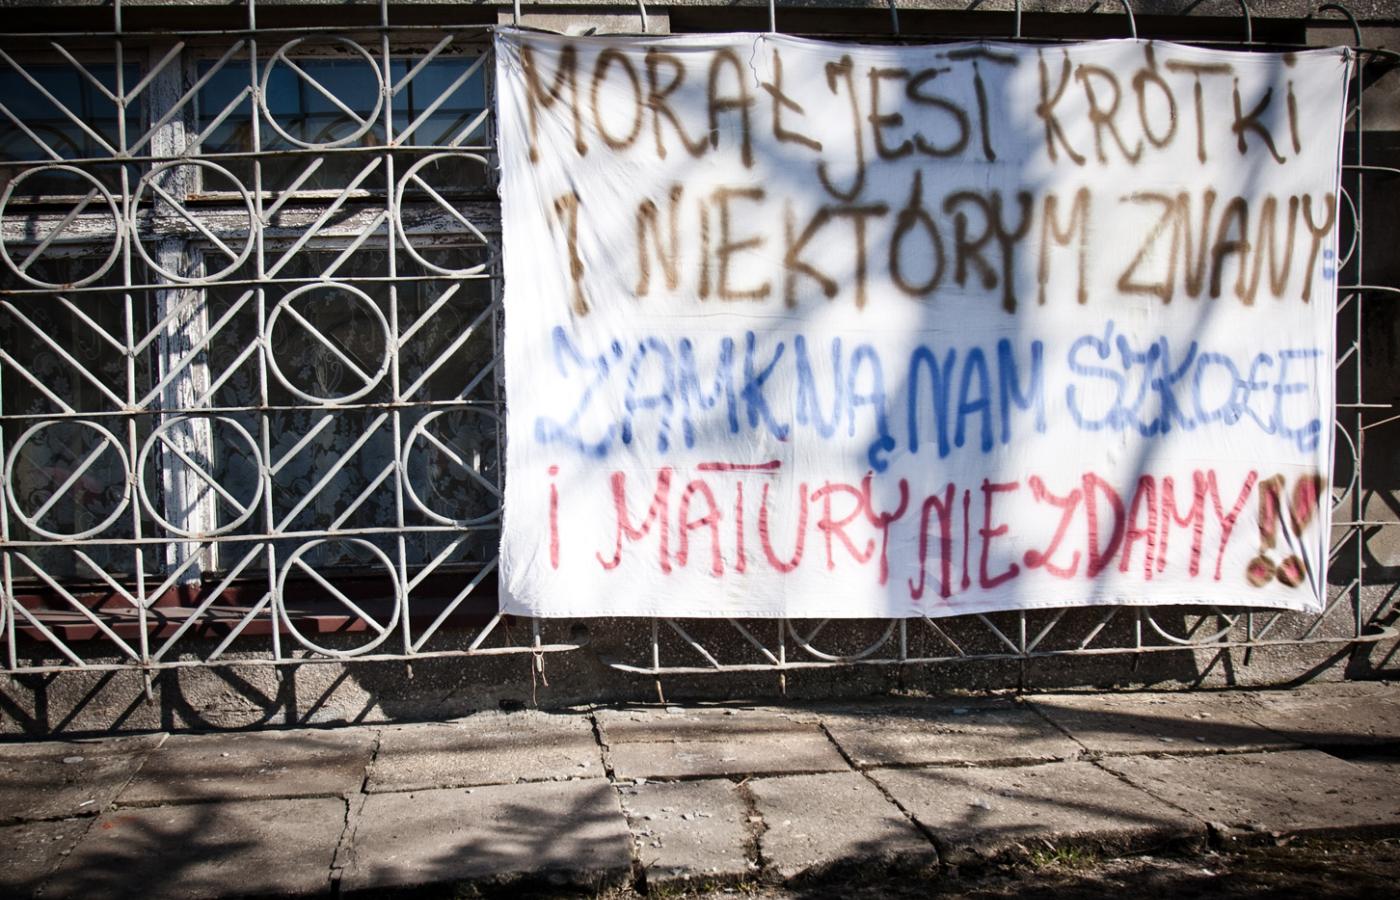 MORAŁ JEST KRÓTKi
I NIEKTÓRYM ZNANY:
ZAMKNĄ NAM SZKOŁĘ
i MATURY NIE ZDAMY!!